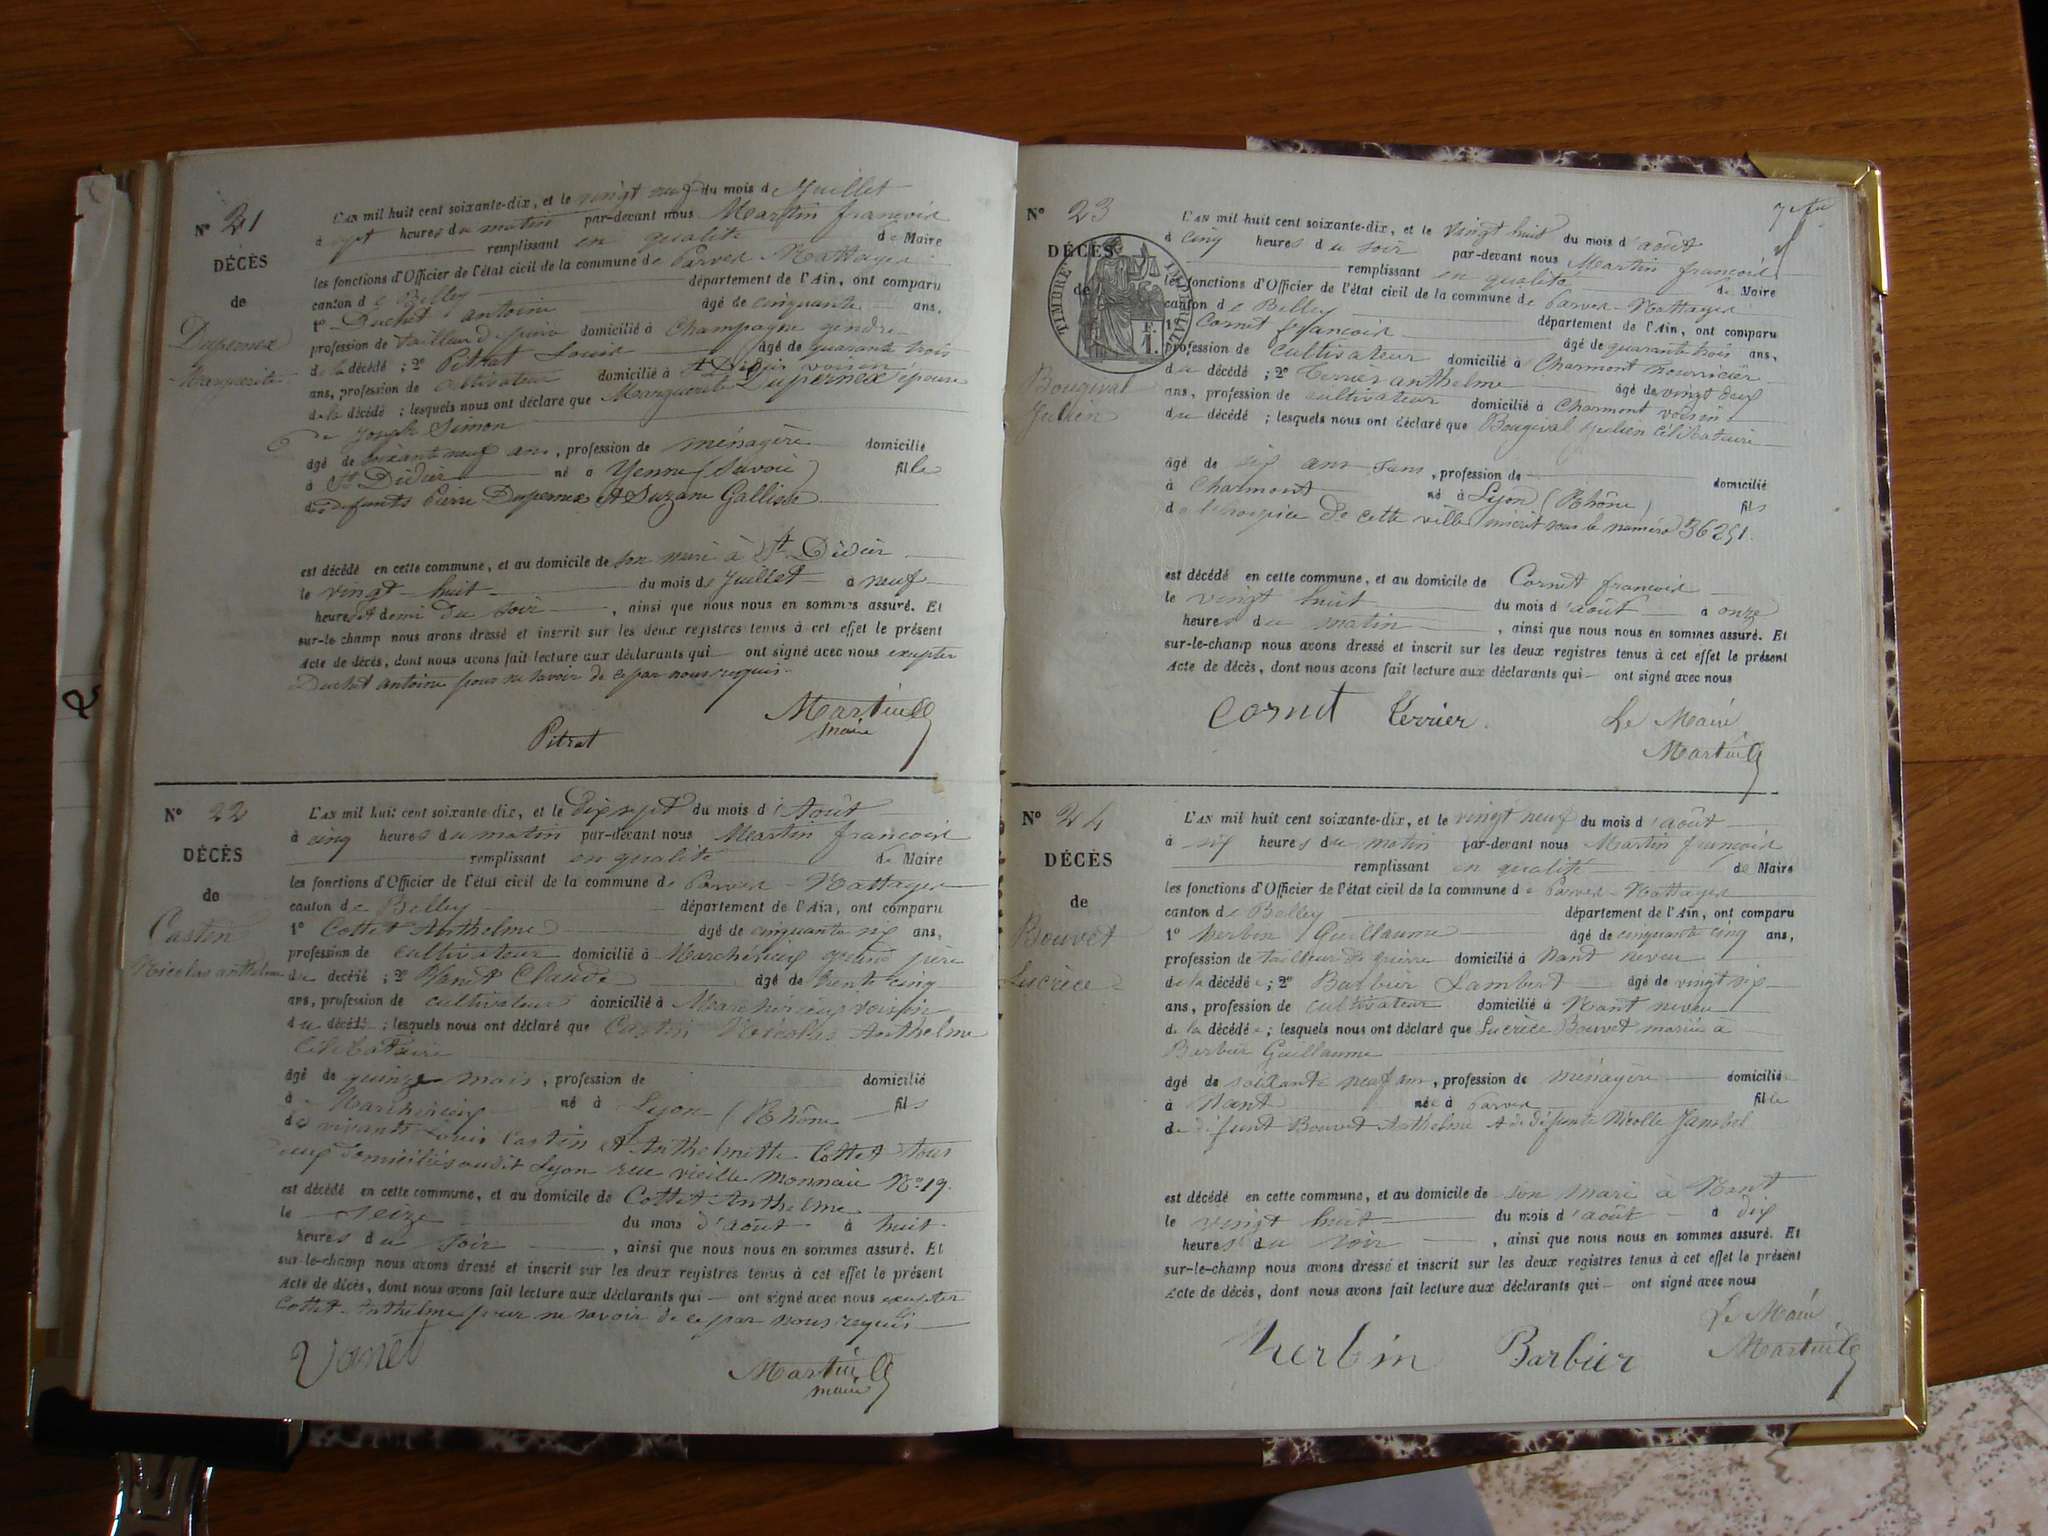 N° 21
DÉCÈS
de
Dupernex
Marguerite
L'AN mil huit cent soixante-dix, et le vingt neuf du mois de Juillet
à sept heures du matin par-devant nous Martin francois
remplissant en qualité de Maire
les fonctions d'Officier de l'état civil de la commune de Parves Nattages
canton de Belley département de l'Ain, ont comparu
1° Duchet antoine âgé de cinquante ans,
profession de tailleur de pierre domicilié à Champagne gendre
de la décédé ; 2° Pitrat Louis âgé de quarante trois
ans, profession de cultivateur domicilié à St Didier voisin
de la décédé ; lesquels nous ont déclaré que Marguerite Dupernex épouse
de Joseph Simon
âgé de soixante neuf ans, profession de ménagère domicilié
à St Didier né a Yenne (Savoie) fille
des defunts Pierre Dupernex et Suzane Gallisse
est décédé en cette commune, et au domicile de son mari à St Didier
le vingt huit du mois de Juillet à neuf
heures et demi du soir, ainsi que nous nous en sommes assuré. Et
sur-le-champ nous avons dressé et inscrit sur les deux registres tenus à cet effet le présent
Acte de décès, dont nous avons fait lecture aux déclarants qui ont signé avec nous excepter
Duchet antoine pour ne savoir de ce par nous requis.
Martin
maire
Pitrat
N° 22
DÉCÈS
de
Castin
Nicolas anthelme
L'AN mil huit cent soixante-dix, et le dix sept du mois d'Août
à cinq heures du matin par-devant nous Martin francois
remplissant en qualité de Maire
les fonctions d'Officier de l'état civil de la commune de Parves - Nattages
canton de Belley département de l'Ain, ont comparu
1° Cottet Anthelme âgé de cinquante six ans,
profession de cultivateur domicilié à Marchérieux grand père
du décédé ; 2° Vanet Claude âgé de trente cinq
ans, profession de cultivateur domicilié à Marchérieux voisin
du décédé ; lesquels nous ont déclaré que Castin Nicolas Anthelme
Célibataire
âgé de quinze mois, profession de domicilié
à Marchérieux né à Lyon (Rhône fils
des vivants Louis Castin et Anthelmette Cottet tous
deux domiciliés audit Lyon rue vieille monnaie N° 19.
est décédé en cette commune, et au domicile de Cottet Anthelme
le seize du mois d'août à huit
heures du soir, ainsi que nous nous en sommes assuré. Et
sur-le-champ nous avons dressé et inscrit sur les deux registres tenus à cet effet le présent
Acte de décès, dont nous avons fait lecture aux déclarants qui ont signé avec nous excepter
Cottet Anthelme pour ne savoir de ce par nous requis
Vanet
Martin
maire
N° 23
DÉCÈS
de
TIMBRE IMPÉRIAL
1 F.
Bougival
Julien
L'AN mil huit cent soixante-dix, et le vingt huit du mois d'août
à cinq heures du soir par-devant nous Martin francois
remplissant en qualité de Maire
les fonctions d'Officier de l'état civil de la commune de Parves - Nattages
canton de Belley département de l'Ain, ont comparu
1° Cornet francois âgé de quarante trois ans,
profession de cultivateur domicilié à Charmont nourricier
du décédé ; 2° Terrier anthelme âgé de vingt deux
ans, profession de cultivateur domicilié à Charmont voisin
du décédé ; lesquels nous ont déclaré que Bougival Julien Célibataire
âgé de six ans sans, profession de domicilié
à Charmont né à Lyon (Rhône) fils
de l'hospice de cette ville inscrit sous le numéro 36251.
est décédé en cette commune, et au domicile de Cornet francois
le vingt huit du mois d'août à onze
heures du matin, ainsi que nous nous en sommes assuré. Et
sur-le-champ nous avons dressé et inscrit sur les deux registres tenus à cet effet le présent
Acte de décès, dont nous avons fait lecture aux déclarants qui ont signé avec nous
Cornet Terrier. Le Maire
Martin
N° 24
DÉCÈS
de
Bouvet
Lucrèce
L'AN mil huit cent soixante-dix, et le vingt neuf du mois d'août
à six heures du matin par-devant nous Martin françois
remplissant en qualité de Maire
les fonctions d'Officier de l'état civil de la commune de Parves - Nattages
canton de Belley département de l'Ain, ont comparu
1° herbin Guillaume âgé de cinquante cinq ans,
profession de tailleur de pierre domicilié à Nant neveu
de la décédée ; 2° Barbier Lambert âgé de vingt six
ans, profession de cultivateur domicilié à Nant neveu
de la décédée ; lesquels nous ont déclaré que Lucrèce Bouvet mariée à
Barbier Guillaume
âgé de soixante neuf ans, profession de ménagère domicilié
à Nant née à Parves fille
de défunt Bouvet Anthelme et de défunte Nicolle Jambel
est décédé en cette commune, et au domicile de son mari à Nant
le vingt huit du mois d'août à dix
heures du soir, ainsi que nous nous en sommes assuré. Et
sur-le-champ nous avons dressé et inscrit sur les deux registres tenus à cet effet le présent
Acte de décès, dont nous avons fait lecture aux déclarants qui ont signé avec nous
Le Maire
herbin Barbier Martin